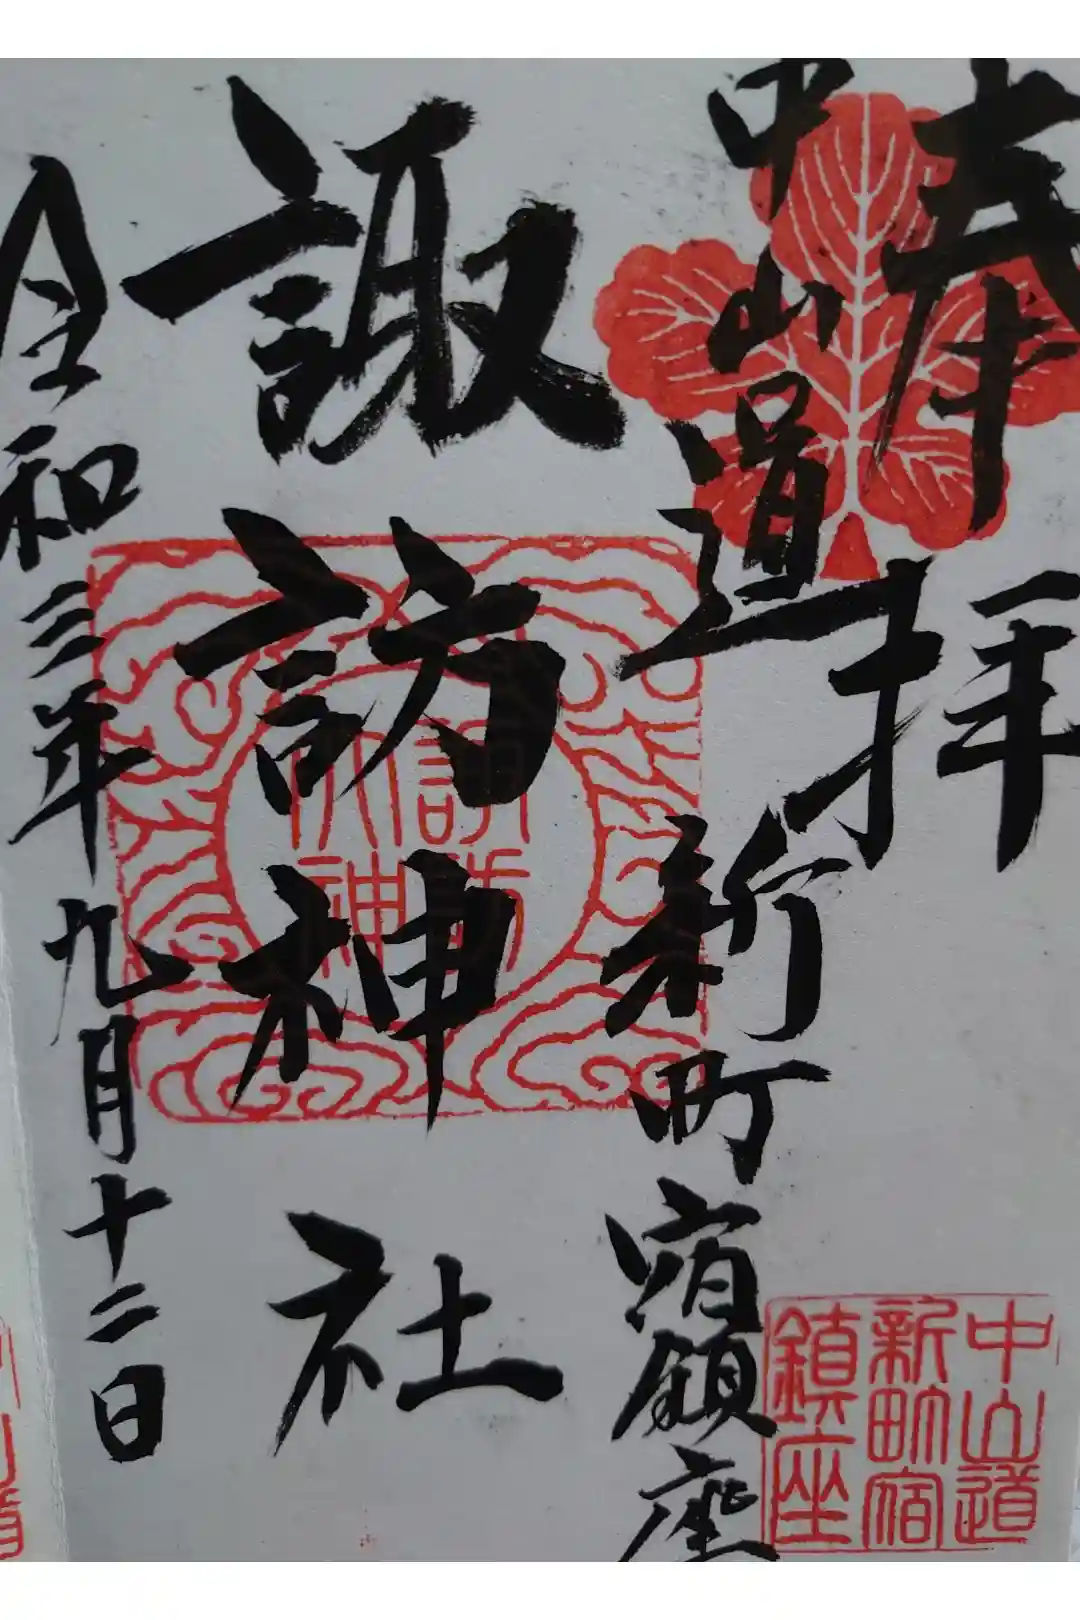 奉拝
中山道新町宿鎮座
諏訪神社
令和三年九月十二日
諏訪
神社
中山道
新町宿
鎮座